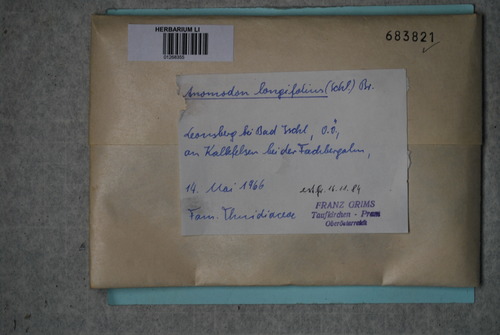 HERBARIUM LI
683821
Anomodon longifolius (Schl) Br.
Leonsberg bei Bad Ischl, O.Ö,
an Kalkfelsen bei der Fachbergalm,
14. Mai 1966
16.11.84
Fam. Thuidiaceae
FRANZ GRIMS
Taufkirchen - Pram
Oberösterreich